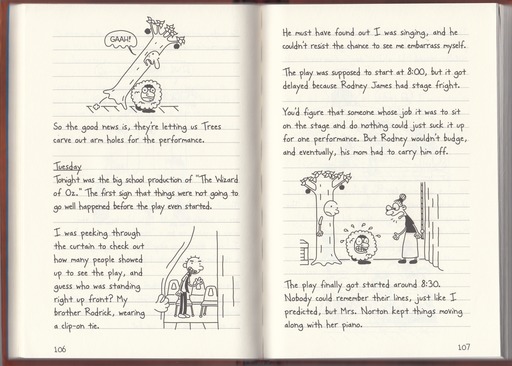 GAAH!
So the good news is, they're letting us Trees
carve out arm holes for the performance.
Tuesday
Tonight was the big school production of "The Wizard
of Oz." The first sign that things were not going to
go well happened before the play even started.
I was peeking through
the curtain to check out
how many people showed
up to see the play, and
guess who was standing
right up front? My
brother Rodrick, wearing
a clip-on tie.
106
He must have found out I was singing, and he
couldn't resist the chance to see me embarrass myself.
The play was supposed to start at 8:00, but it got
delayed because Rodney James had stage fright.
You'd figure that someone whose job it was to sit
on the stage and do nothing could just suck it up
for one performance. But Rodney wouldn't budge,
and eventually, his mom had to carry him off.
The play finally got started around 8:30.
Nobody could remember their lines, just like I
predicted, but Mrs. Norton kept things moving
along with her piano.
107